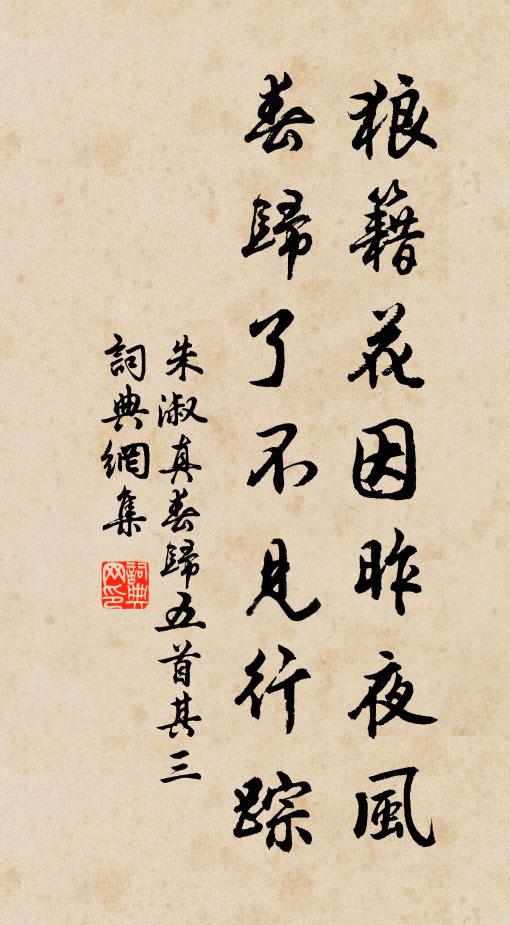 狼籍花因昨夜風
春歸了不見行踪
朱淑真春歸五首其三
詞典網集
詞典網印